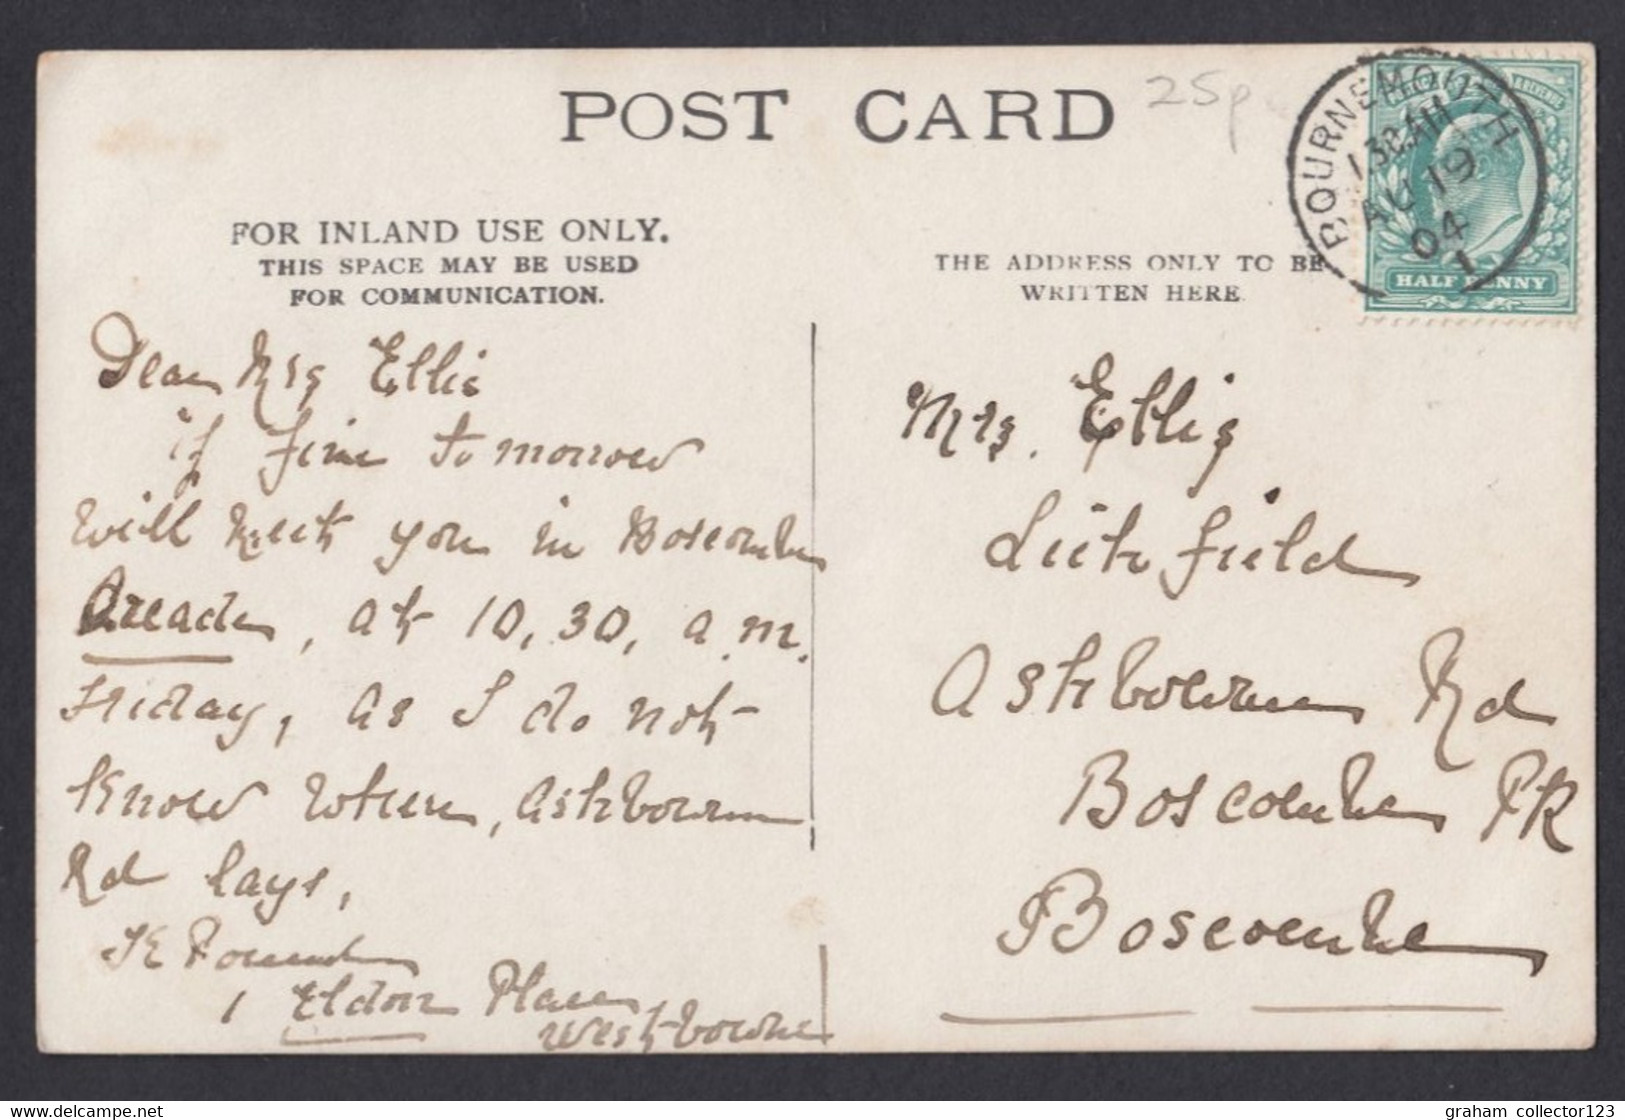 POST CARD
25p
BOURNEMOUTH
1 30 AM
AU 19
04
1
HALF PENNY
FOR INLAND USE ONLY.
THIS SPACE MAY BE USED
FOR COMMUNICATION.
THE ADDRESS ONLY TO BE
WRITTEN HERE
Dear Mrs Ellis
if fine tomorrow
will meet you in Boscombe
Arcade, at 10,30, a.m.
Friday, as I do not
know where, Ashbourne
Rd lays,
1 Eldon Place
Westbourne
Mrs. Ellis
Litchfield
Ashbourne Rd
Boscombe PK
Boscombe
graham collector123